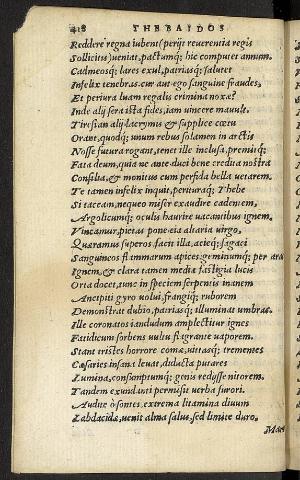 418 THEBAIDOS
Reddere regna iubent (perijt reuerentia regis
Sollicitis) ueniat, pactumq; hic computet annum.
Cadmeosq; lares exul, patriasq; salutet
Infelix tenebras. cur aut ego sanguine fraudes,
Et periura luam regalis crimina noxæ?
Inde alij sera ista fides, iam uincere mauult.
Tiresian alij lacrymis & supplice cœtu
Orant, quodq; unum rebus solamen in arctis
Nosse futura rogant, tenet ille inclusa, premitq;
Fata deum, quia ne ante duci bene credita nostra
Consilia, & monitus cum perfida bella uetarem.
Te tamen infelix inquit, perituraq; Thebe
Si taceam, nequeo miser exaudire cadentem,
Argolicumq; oculis haurire uacantibus ignem.
Vincamur, pietas pone eia altaria uirgo,
Quæramus superos facit illa, acieq; sagaci
Sanguineos flammarum apices, geminumq; per aras
Ignem, & clara tamen media fastigia lucis
Orta docet, tunc in speciem serpentis inanem
Ancipiti gyro uolui, frangiq; ruborem
Demonstrat dubio, patriasq; illuminat umbras.
Ille coronatos iandudum amplectitur ignes
Fatidicum sorbens uultu flagrante uaporem.
Stant tristes horrore comæ, uittasq; trementes
Cæsaries insana leuat, diducta putares
Lumina, consumptumq; genis redisse nitorem.
Tandem exundanti permisit uerba furori.
Audite ò sontes, extrema litamina diuum
Labdacidæ, uenit alma salus, sed limite duro,